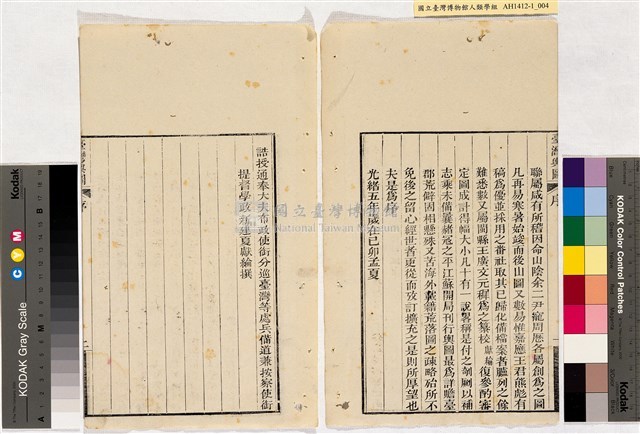 國立臺灣博物館人類學組 AH1412-1_004
臺灣輿圖
序
聯屬咸有所稽因命山陰余二尹寵周歷各屬創為之圖
凡再易寒暑始竣而後山圖又數易惟嘉應王君熊彪有
稿為優並採用之番社取其已歸化備檔案者聽列之餘
難悉數又屬閩縣王廣文元穉為之纂校獻綸復參酌審
定圖成計得幅大小凡十有一說畧稱是付之剞劂以補
志乘未備冀緒冠之平江蘇開局刊行輿圖最為詳贍臺
郡荒僻固相懸殊又苦海外榛荒落圖之疎略殆所不
免後之留心經世者更從而攷訂擴充之是則所厚望也
夫是為序
光緒五年歲在己卯孟夏
誥授通奉大夫布政使銜分巡臺灣等處兵備道兼按察使銜
提督學政新建夏獻綸撰
臺灣輿圖
序
二
國立臺灣博物館
National Taiwan Museum
Kodak
KODAK Gray Scale
C Y M
A
M
B
Kodak
KODAK Color Control Patches